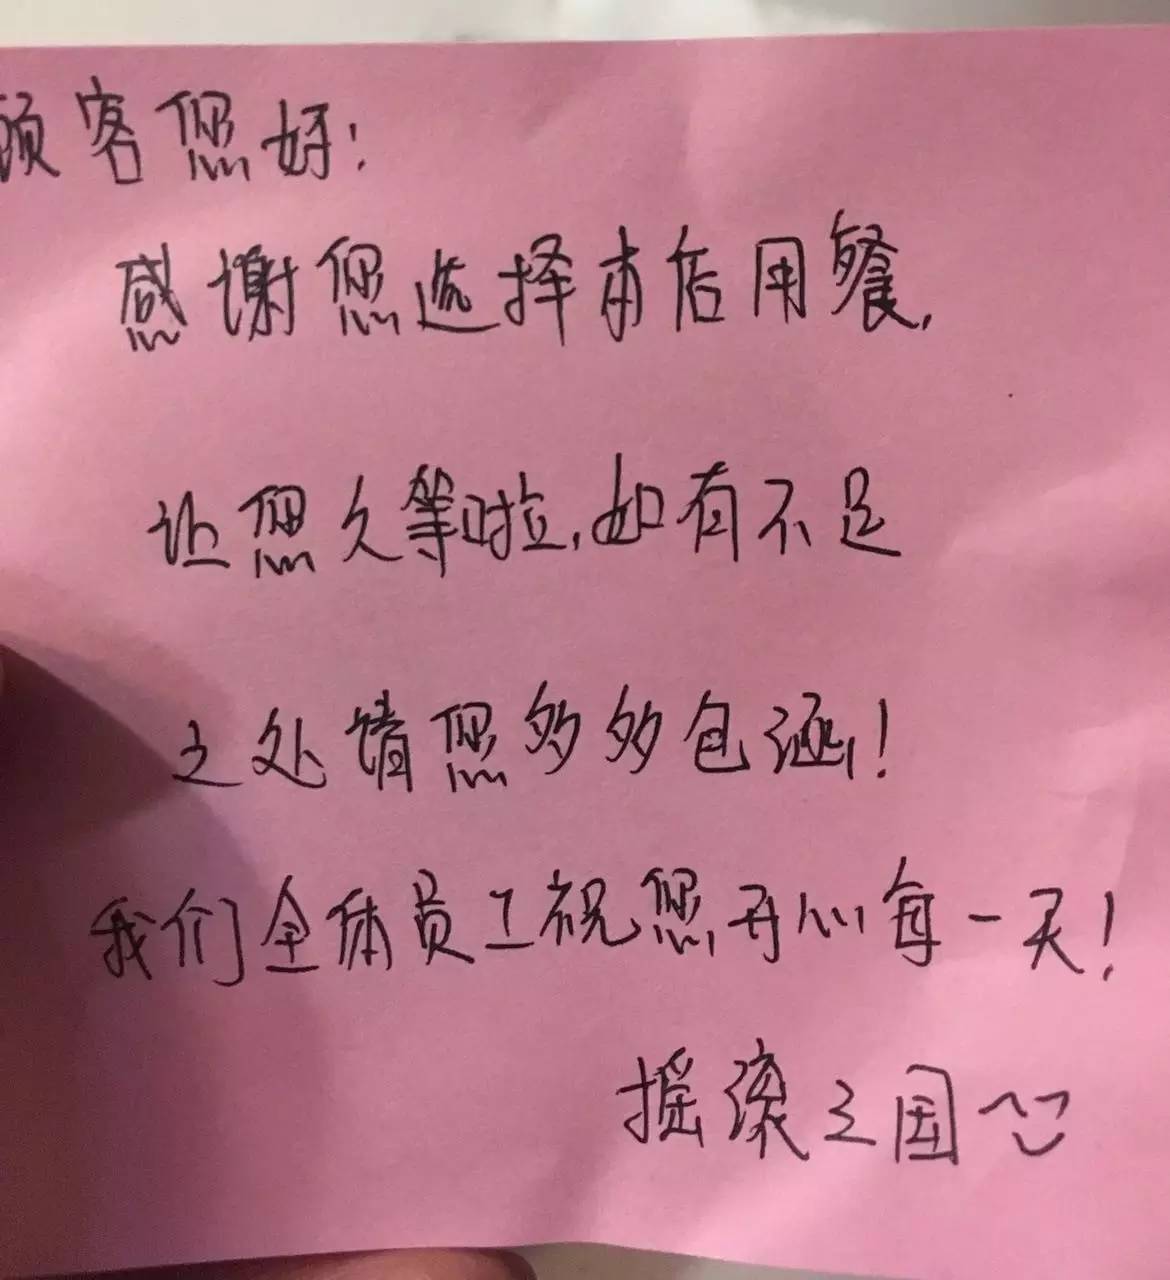 顾客您好!
感谢您选择本店用餐,
让您久等啦,如有不足
之处请您多多包涵!
我们全体员工祝您开心每一天!
摇滚之国